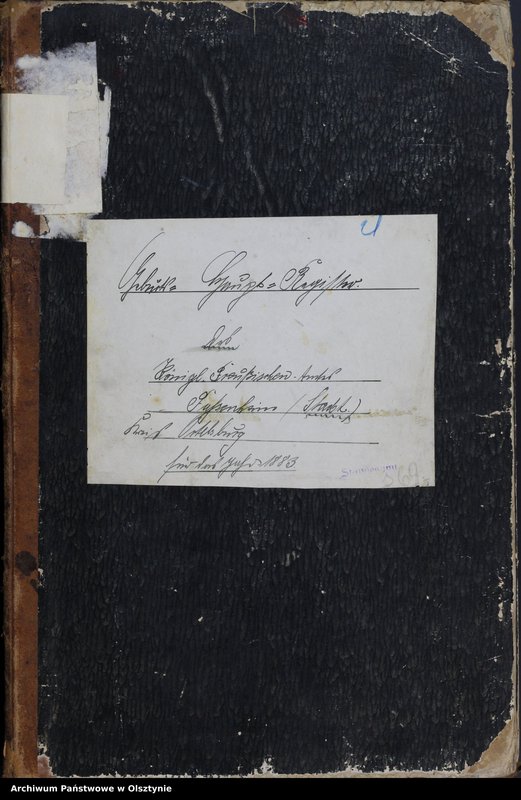 Geburts-Haupt-Register.
des
Königl. Preußischen Amtes
Passenheim (Stadt.)
Kreis Ortelsburg
für das Jahr 1883.
Archiwum Państwowe w Olsztynie